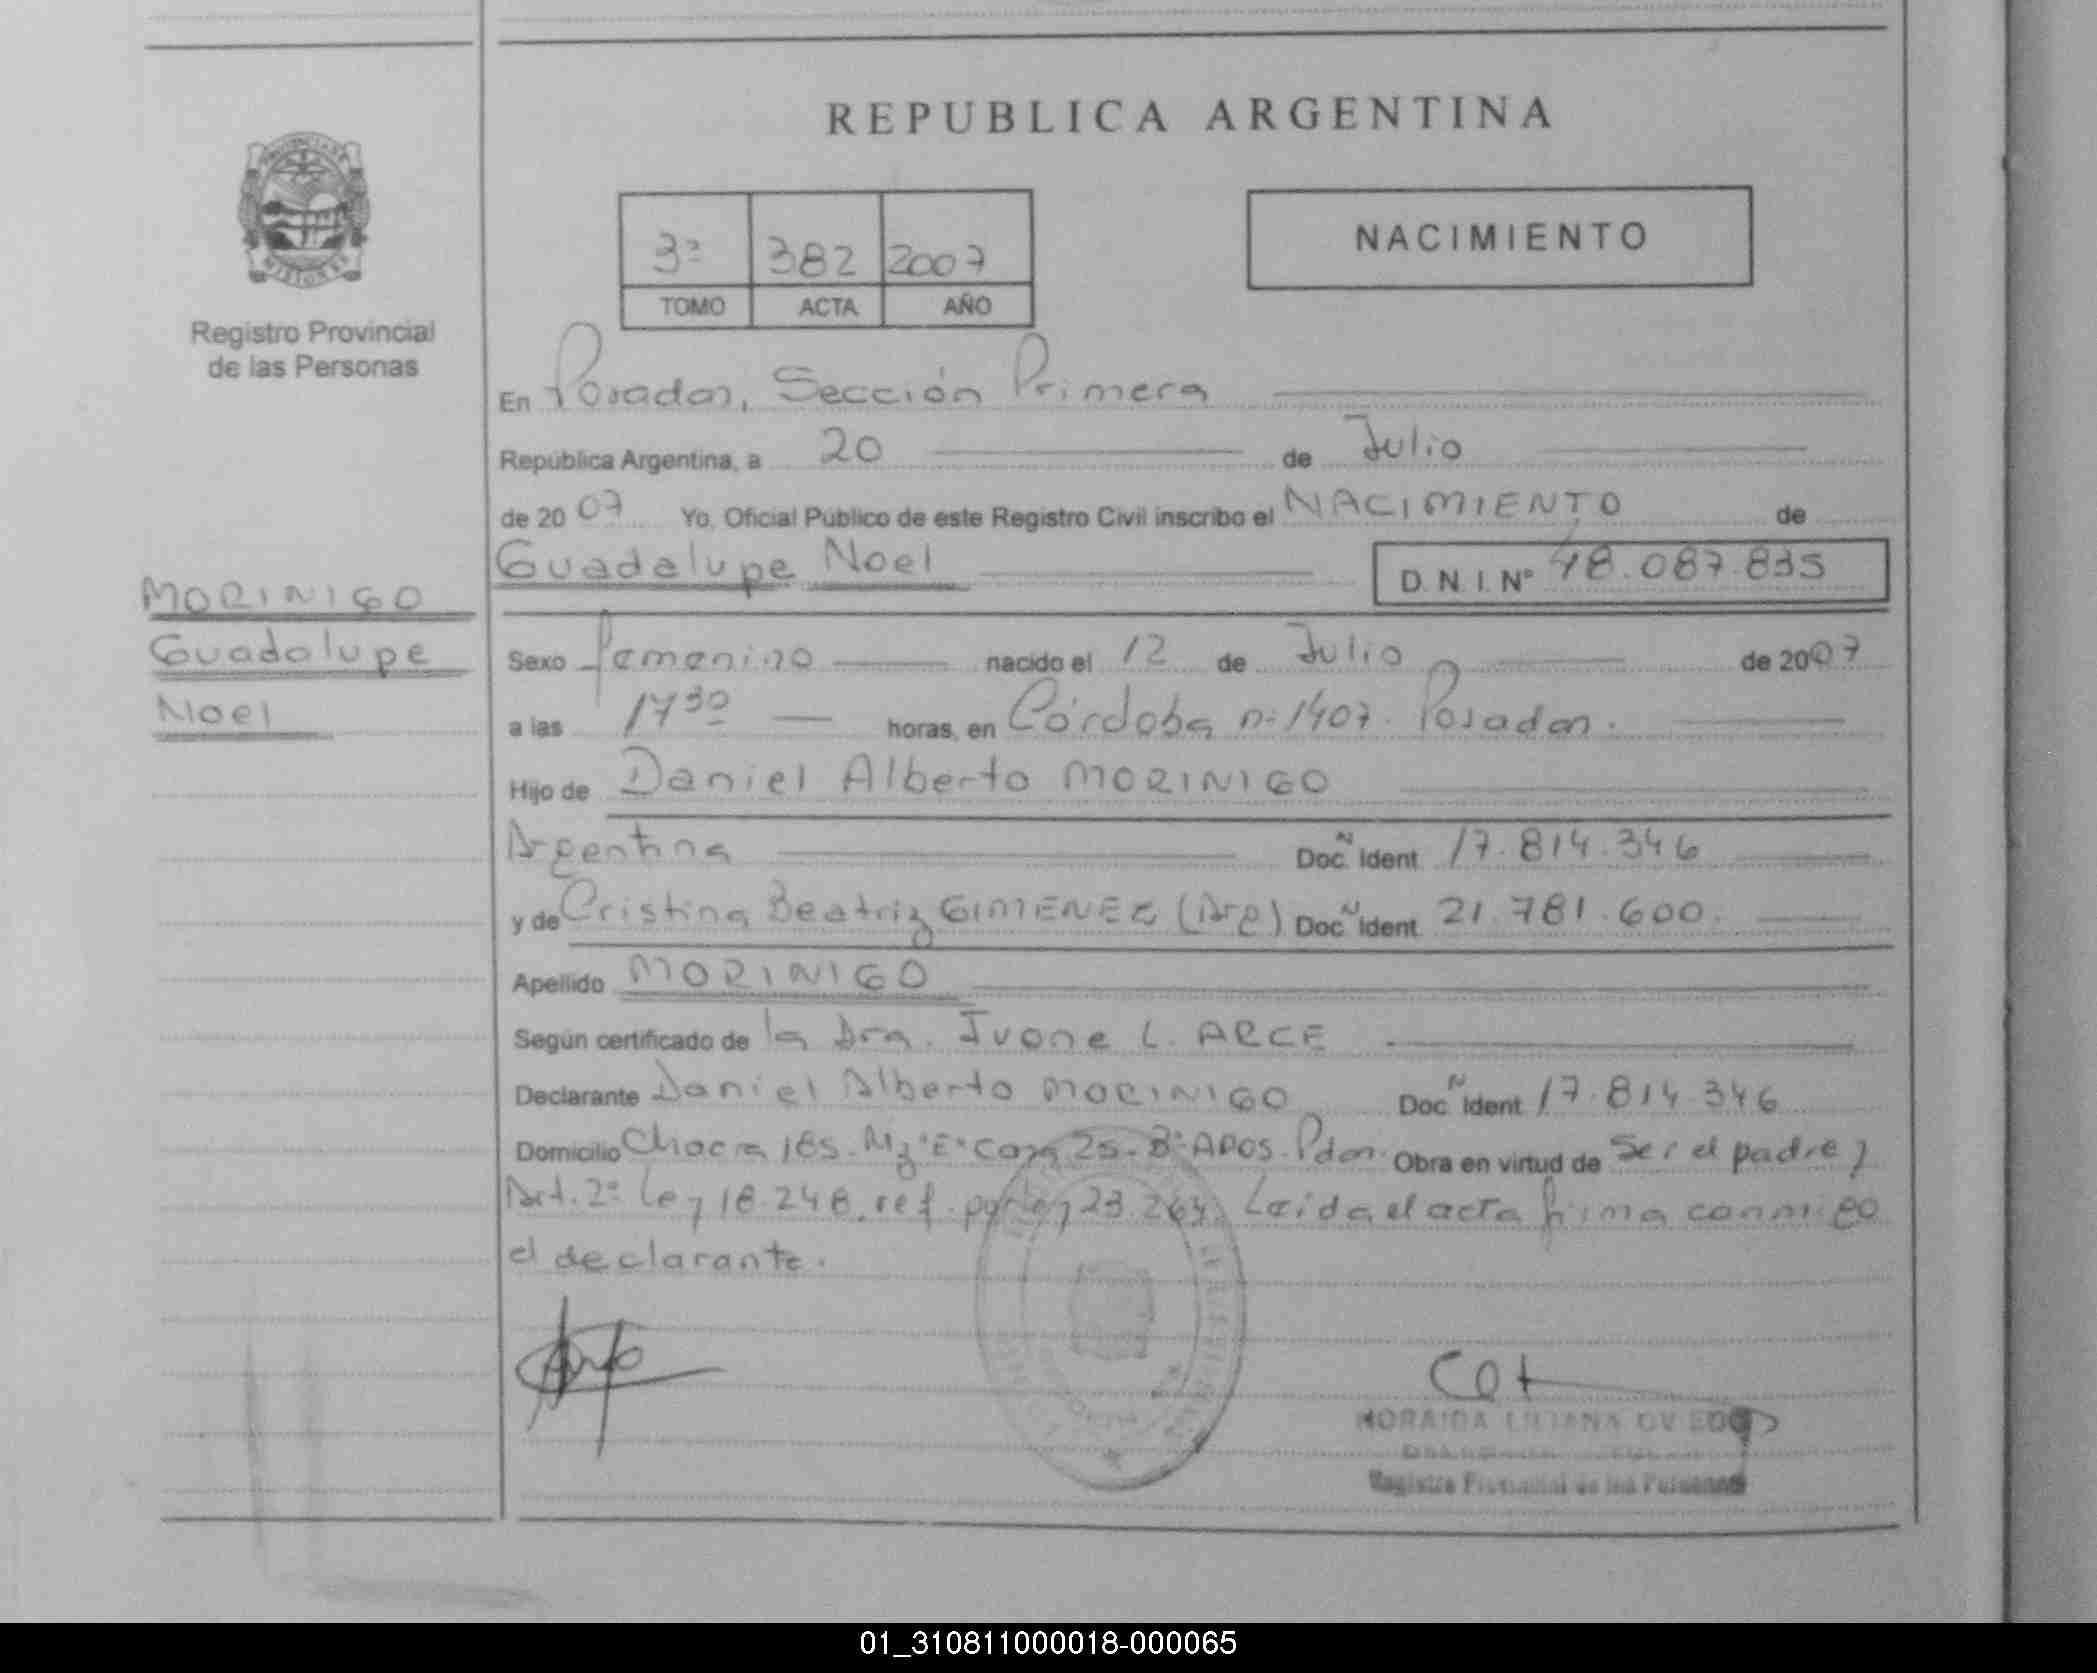 REPUBLICA ARGENTINA
PROVINCIA DE
MISIONES
Registro Provincial
de las Personas
3º 382 2007
TOMO ACTA AÑO
NACIMIENTO
En Posadas, Sección Primera
República Argentina, a 20 de Julio
de 2007 Yo, Oficial Público de este Registro Civil inscribo el NACIMIENTO de
Guadalupe Noel D.N.I. Nº 48.087.835
MORINIGO
Guadalupe
Noel
Sexo femenino nacido el 12 de Julio de 2007
a las 17 30 horas, en Córdoba nº 1407. Posadas.
Hijo de Daniel Alberto MORINIGO
Argentina Doc. N Ident 17.814.346
y de Cristina Beatriz GIMENEZ (Arg) Doc. N Ident 21.781.600.
Apellido MORINIGO
Según certificado de la Dra. Ivone L. ARCE
Declarante Daniel Alberto MORINIGO Doc. N Ident 17.814.346
Domicilio Chacra 185. Mz "E" Casa 25. Bº APOS. Pdas. Obra en virtud de Ser el padre y
Art. 2º Ley 18.248. ref. por ley 23.264. Leída el acta firma conmigo
el declarante.
NORAIDA LILIANA OVIEDO
Registro Provincial de las Personas
01_310811000018-000065